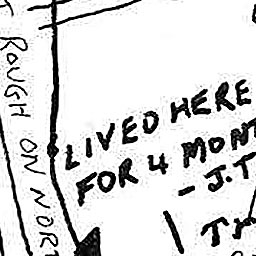 ROUGH ON NORT
LIVED HERE
FOR 4 MONT
- J.T